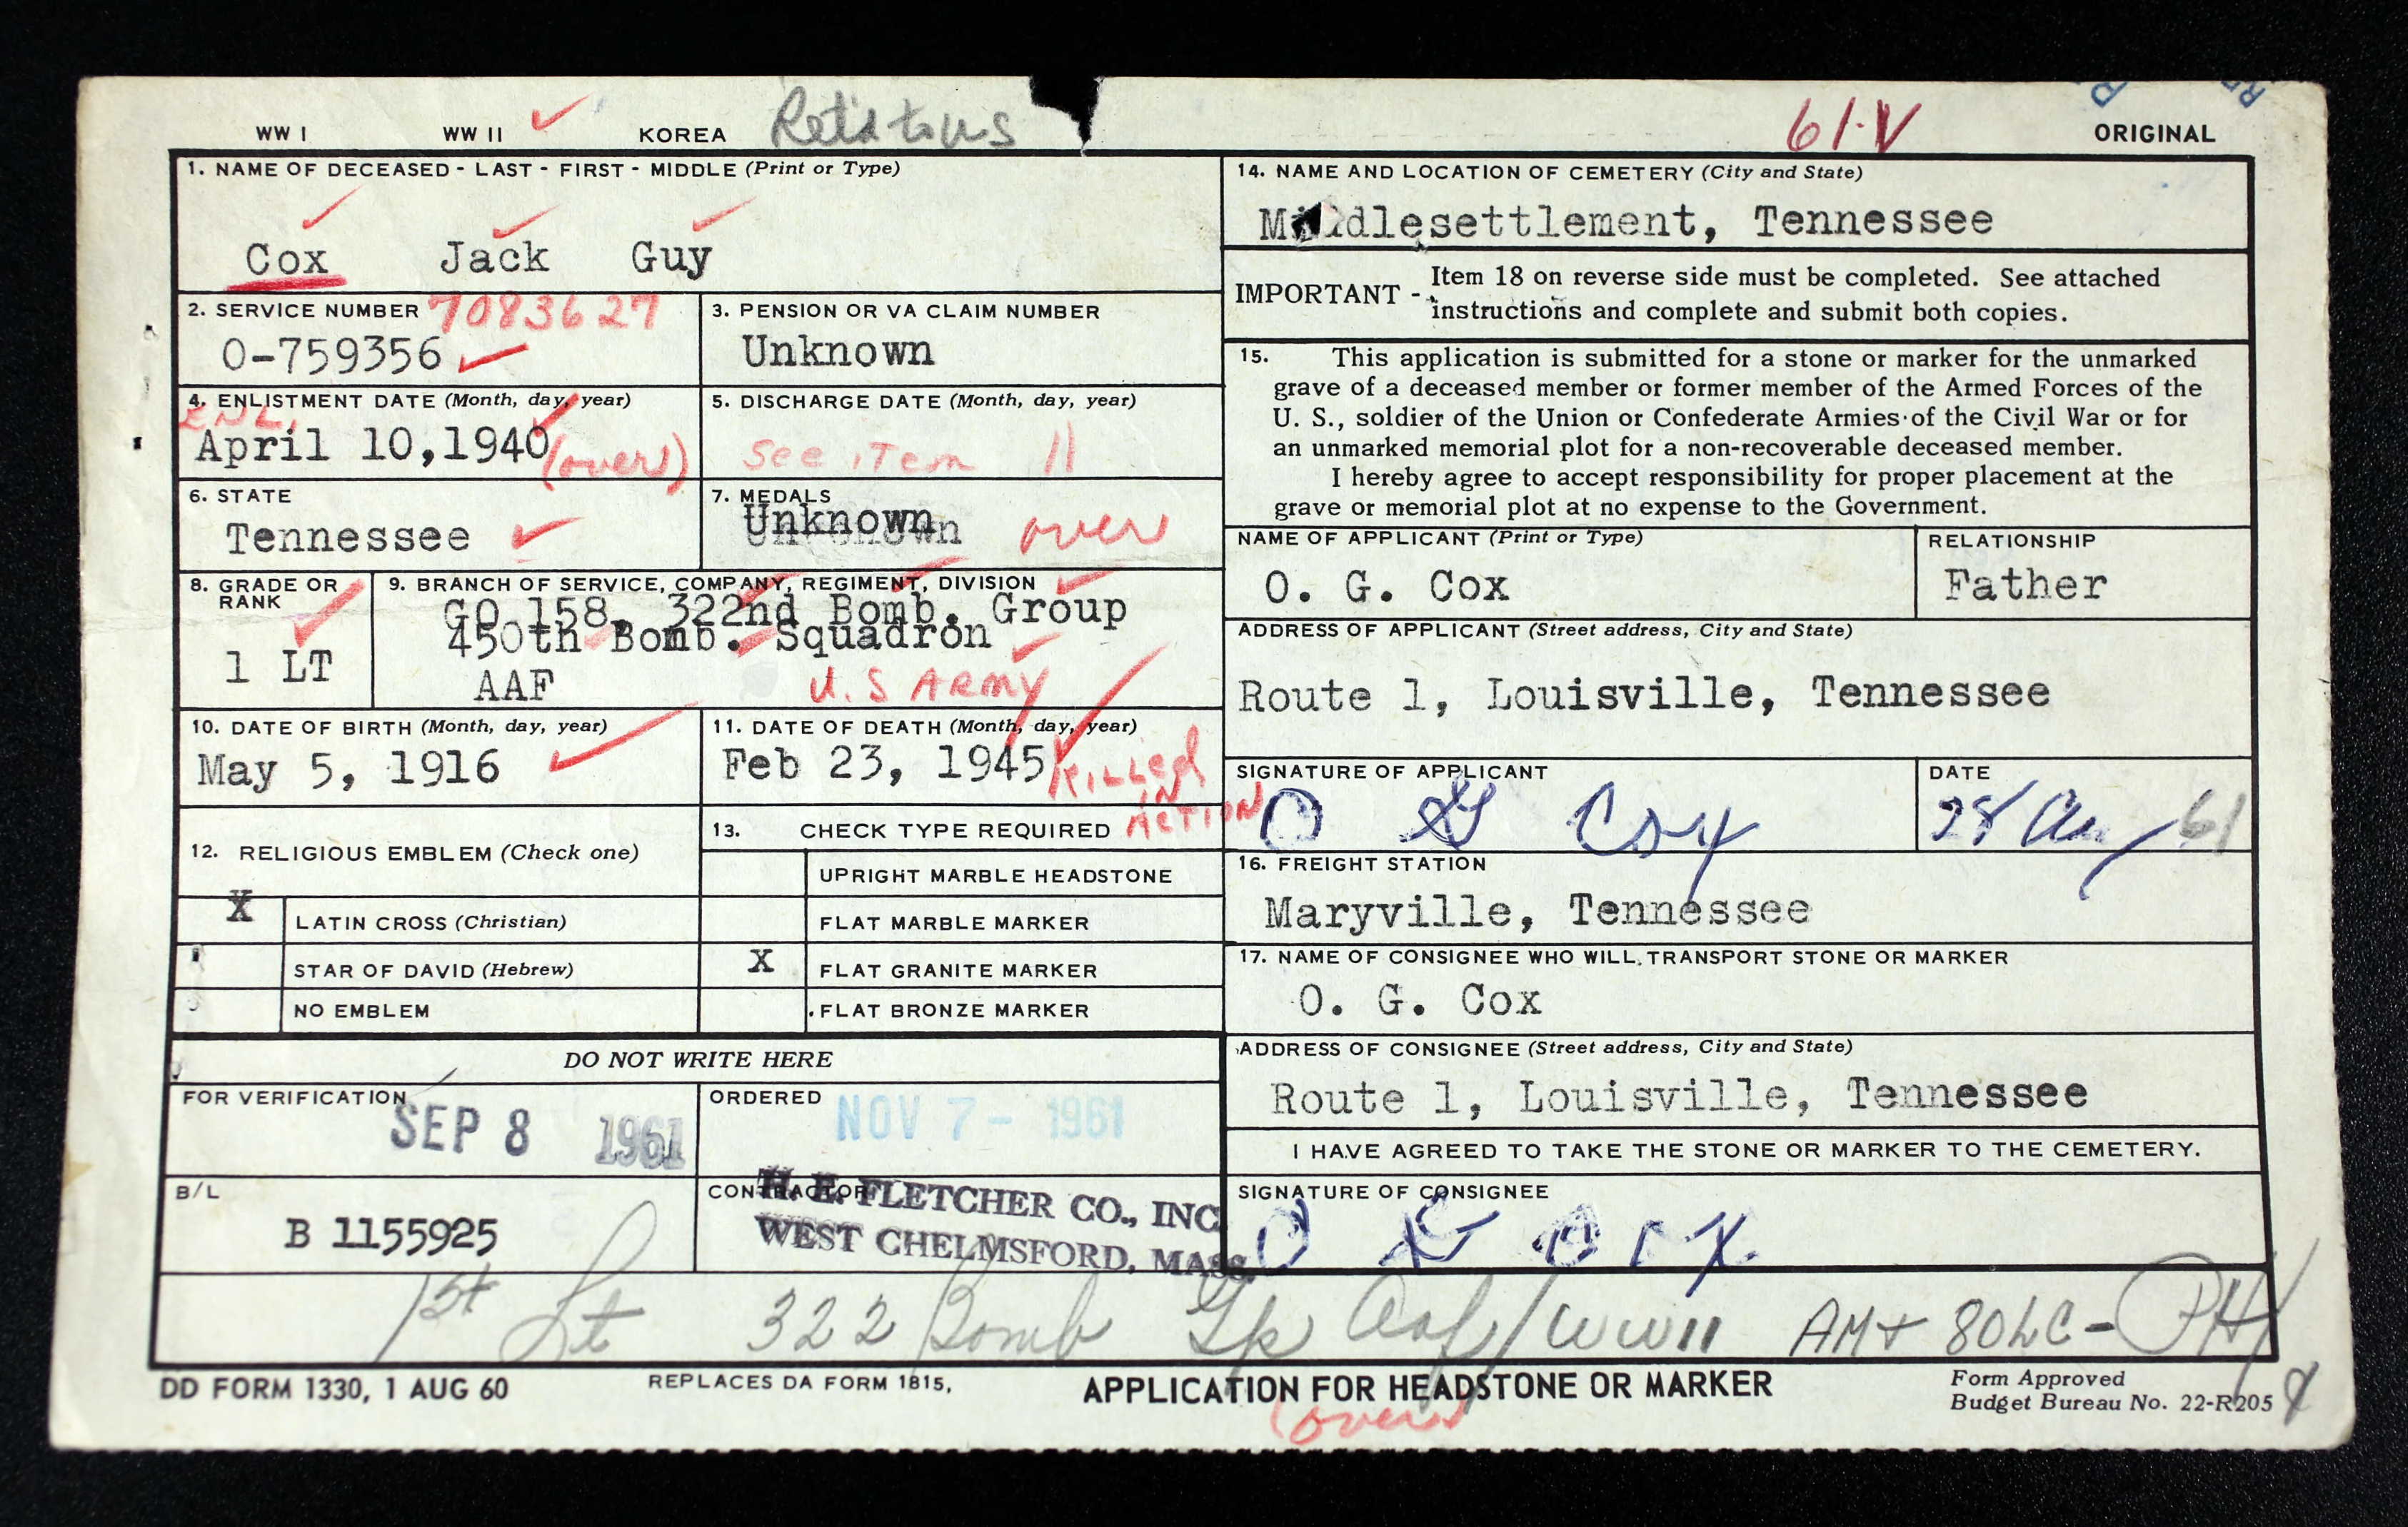 WW I WW II ✓ KOREA 61-V ORIGINAL
1. NAME OF DECEASED - LAST - FIRST - MIDDLE (Print or Type)
Cox Jack Guy
2. SERVICE NUMBER 7083627
O-759356
3. PENSION OR VA CLAIM NUMBER
Unknown
4. ENLISTMENT DATE (Month, day, year)
ENL.
April 10,1940 (over)
5. DISCHARGE DATE (Month, day, year)
See iTem 11
6. STATE
Tennessee
7. MEDALS
Unknown over
8. GRADE OR
RANK
1 LT
9. BRANCH OF SERVICE, COMPANY, REGIMENT, DIVISION
GO 158, 322nd Bomb. Group
450th Bomb. Squadron
AAF U.S ARMY
10. DATE OF BIRTH (Month, day, year)
May 5, 1916
11. DATE OF DEATH (Month, day, year)
Feb 23, 1945 KILLed
IN
ACTION
12. RELIGIOUS EMBLEM (Check one)
X LATIN CROSS (Christian)
STAR OF DAVID (Hebrew)
NO EMBLEM
13. CHECK TYPE REQUIRED
UPRIGHT MARBLE HEADSTONE
FLAT MARBLE MARKER
X FLAT GRANITE MARKER
FLAT BRONZE MARKER
DO NOT WRITE HERE
FOR VERIFICATION
SEP 8 1961
ORDERED
NOV 7 - 1961
B/L
B 1155925
CONTRACTOR
H. E. FLETCHER CO., INC
WEST CHELMSFORD, MASS.
14. NAME AND LOCATION OF CEMETERY (City and State)
Middlesettlement, Tennessee
IMPORTANT - Item 18 on reverse side must be completed. See attached
instructions and complete and submit both copies.
15. This application is submitted for a stone or marker for the unmarked
grave of a deceased member or former member of the Armed Forces of the
U. S., soldier of the Union or Confederate Armies of the Civil War or for
an unmarked memorial plot for a non-recoverable deceased member.
I hereby agree to accept responsibility for proper placement at the
grave or memorial plot at no expense to the Government.
NAME OF APPLICANT (Print or Type)
O. G. Cox
RELATIONSHIP
Father
ADDRESS OF APPLICANT (Street address, City and State)
Route 1, Louisville, Tennessee
SIGNATURE OF APPLICANT
O G Cox
DATE
28 Aug 61
16. FREIGHT STATION
Maryville, Tennessee
17. NAME OF CONSIGNEE WHO WILL TRANSPORT STONE OR MARKER
O. G. Cox
ADDRESS OF CONSIGNEE (Street address, City and State)
Route 1, Louisville, Tennessee
I HAVE AGREED TO TAKE THE STONE OR MARKER TO THE CEMETERY.
SIGNATURE OF CONSIGNEE
O G Cox
1st Lt 322 Bomb Gp Aaf/WWII AM+ 8OLC-PH
DD FORM 1330, 1 AUG 60 REPLACES DA FORM 1815, APPLICATION FOR HEADSTONE OR MARKER
(over)
Form Approved
Budget Bureau No. 22-R205